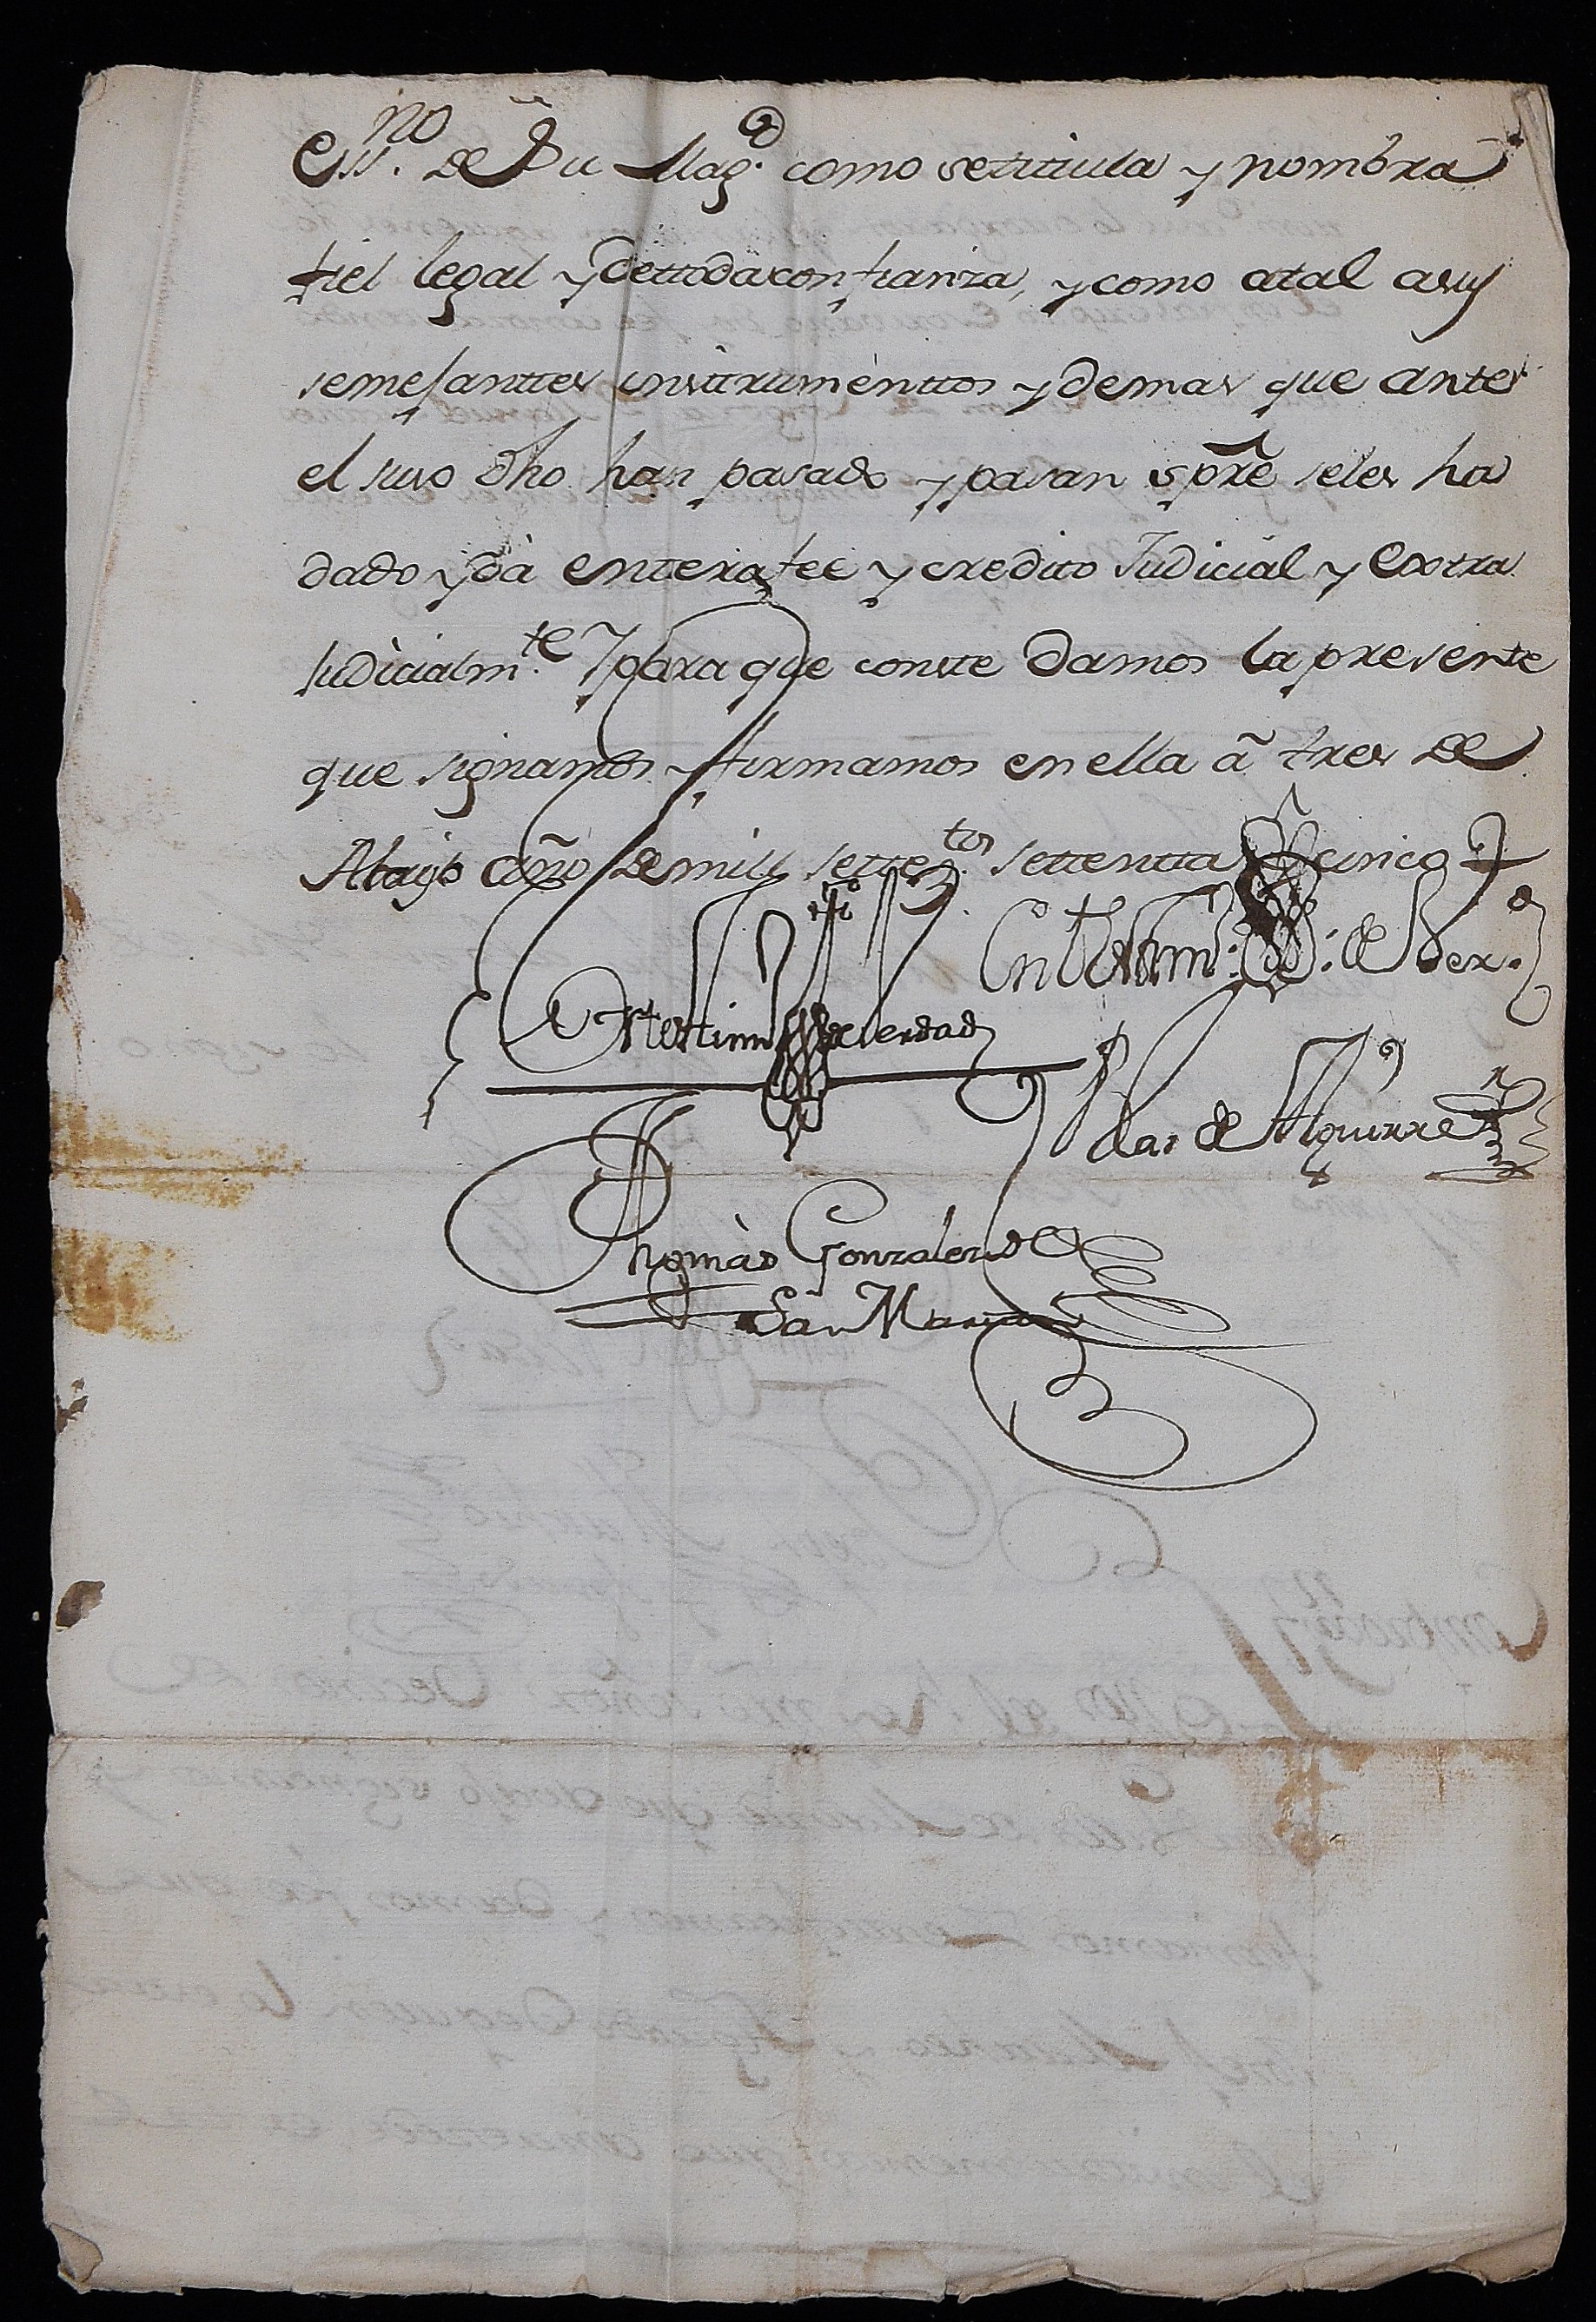 Essno. de Su Magd. como setitiula y nombra
fiel legal y dettodaconfianza, y como atal asus
semejanttes instrumenttos y demas que antes
el suso dho han pasado y pasan spre seles ha
dado y dà enterafee y credito Judicial y Extra
Judicialmte. Y para que conste damos la presente
que signamos y firmamos en ella ã tres de
Maijo año de mill settetos. settentta y cinco
En testimo. de Verd.
En testimo de Verdad
Blas de Aguirre
Thomàs Gonzalez de
San Martin